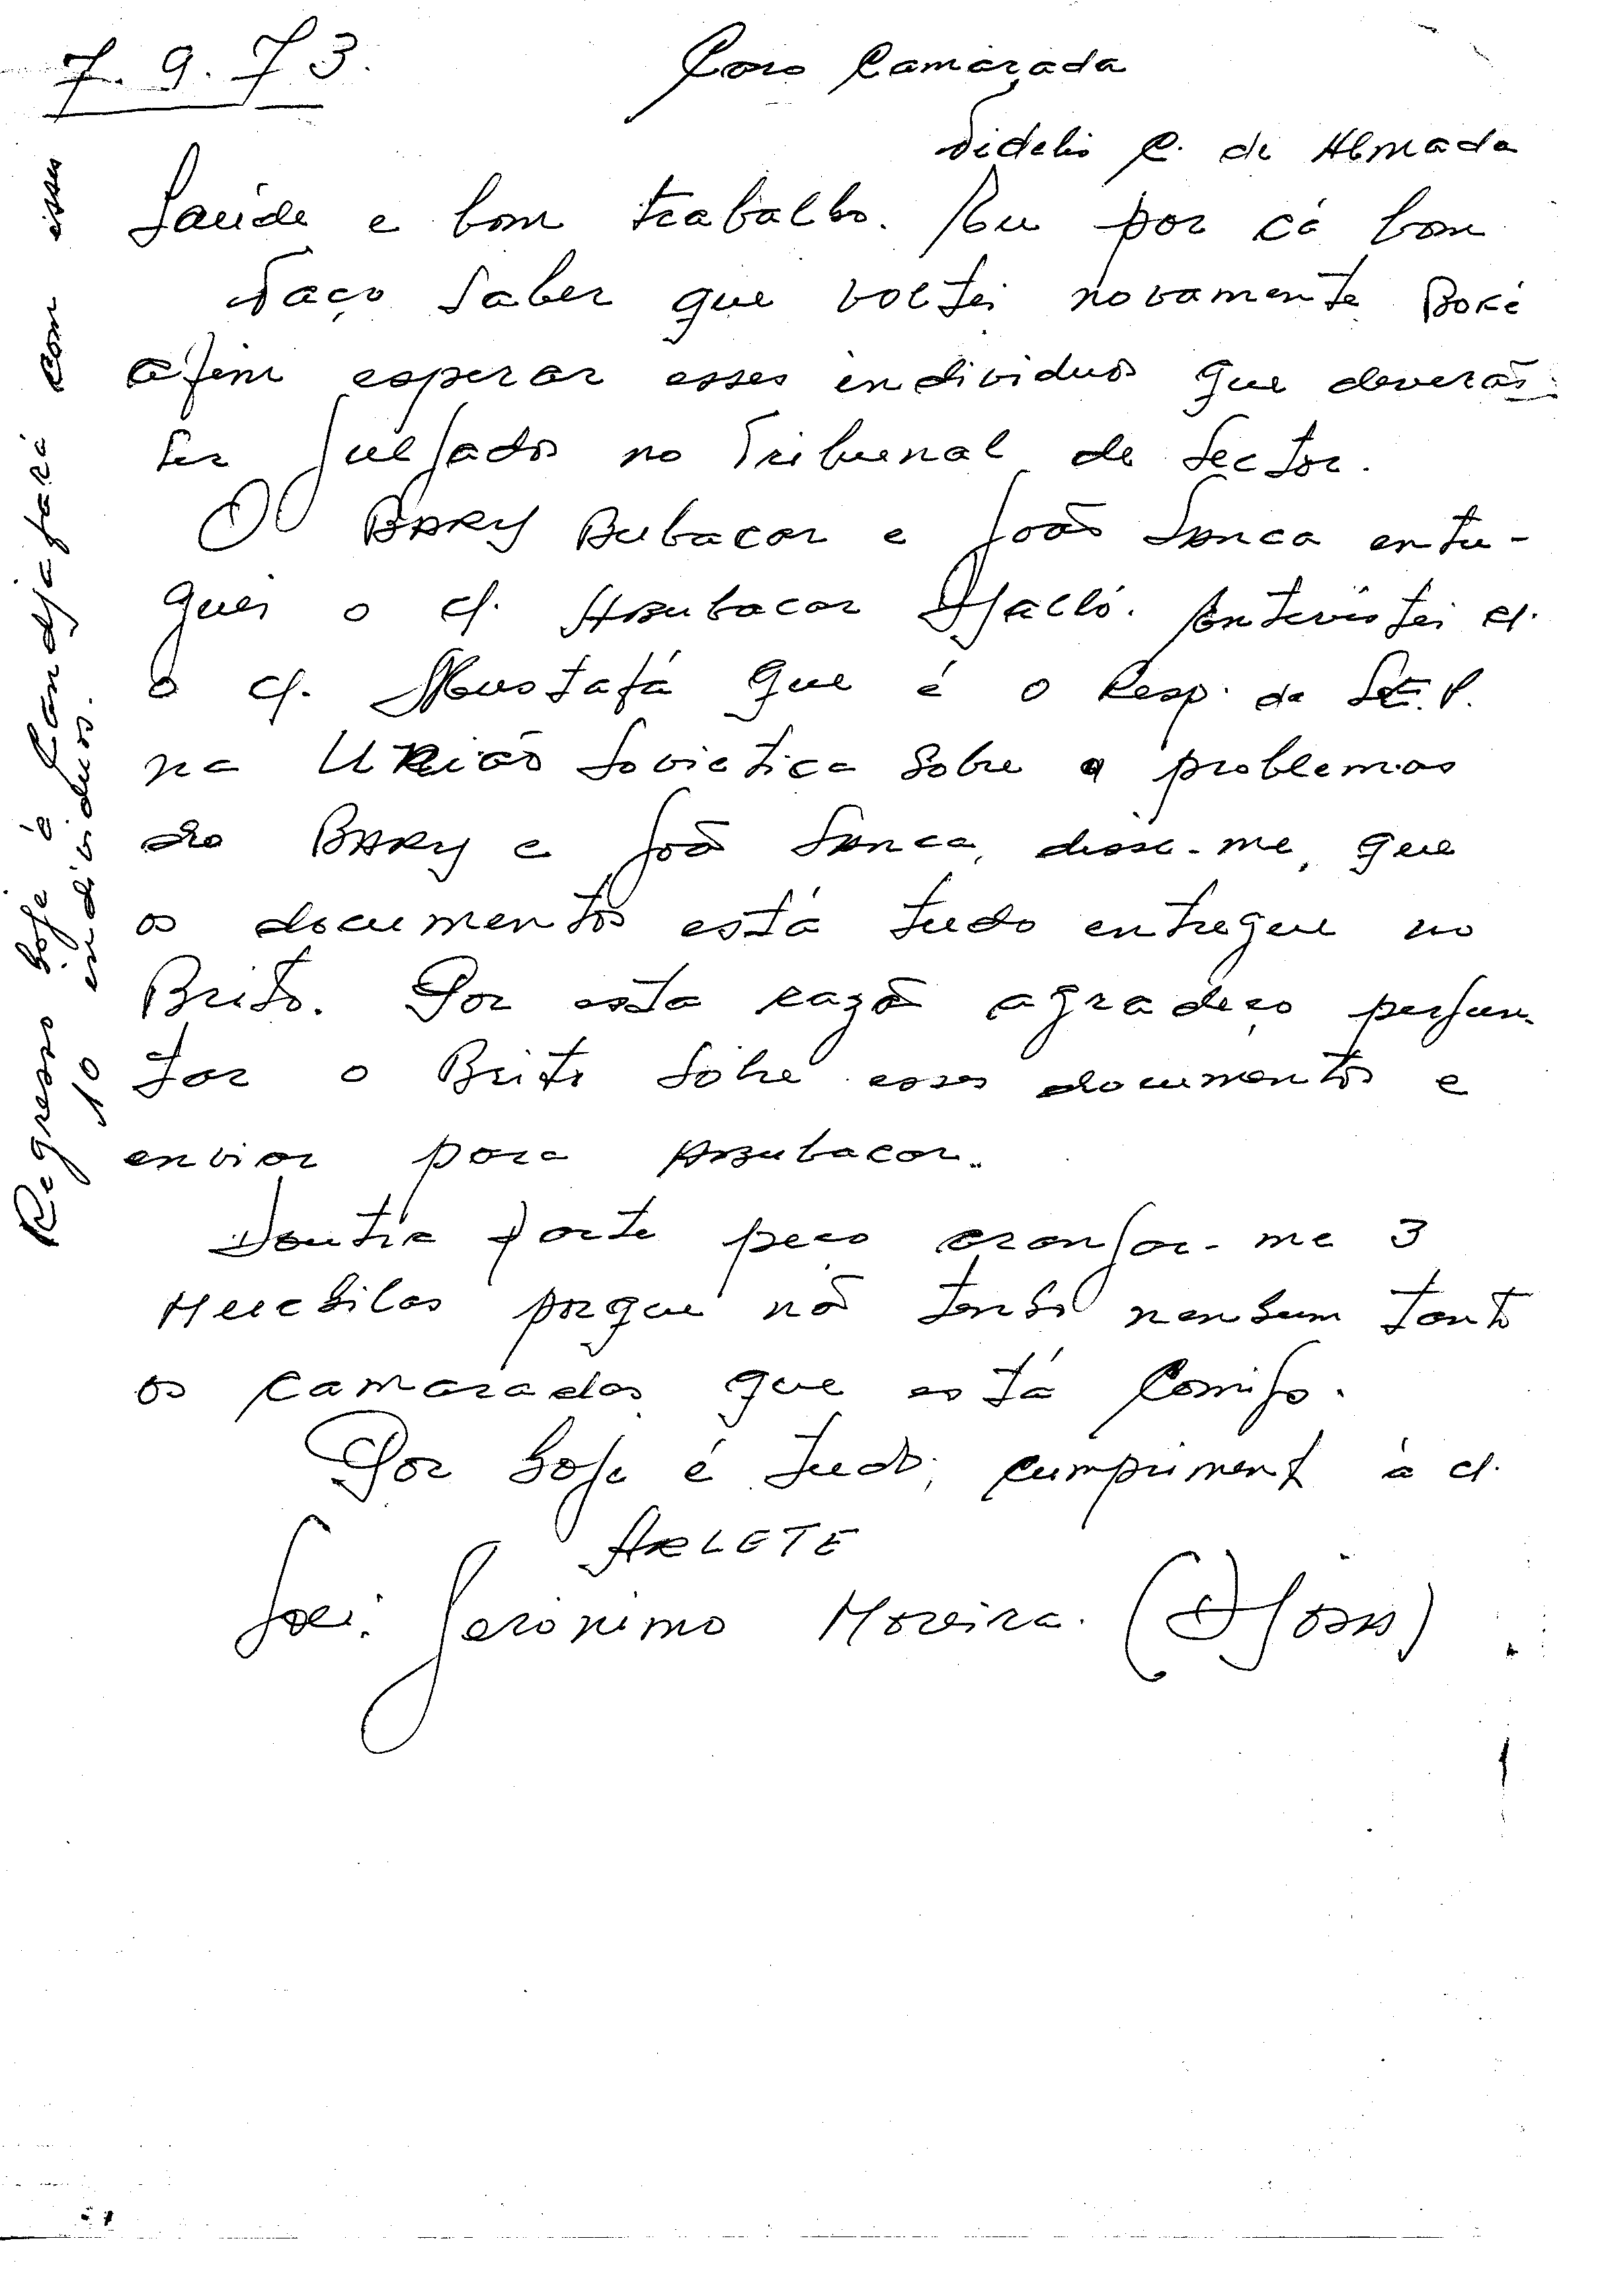 7.9.73.
Caro Camarada
Fidelis C. de Almada
Saúde e bom trabalho. Eu por cá bom
Faço saber que voltei novamente Boké
afim esperar esses individuos que deverão
ser julgados no Tribunal de Sector.
O BARY Bubacar e João Sanca entre-
guei o c/. Abubacar Djaló. Entrevistei c/.
o c/. Mustafá que é o Resp. da
na União Sovietica sobre o problemas
do BARY e João Sanca, disse-me, que
os documentos está tudo entregue no
Brito. Por esta razão agradeço pergun-
tar o Brito sobre esses documentos e
enviar para Abubacar.
Doutra parte peço aranjar-me 3
Muchilas porque não tenho nenhum tanto
os camaradas que está comigo.
Por hoje é tudo, cumpriment à c/.
ARLETE
Jerónimo Moreira. (Djoss)
Regresso hoje é Candjafará com esses
10 individuos.